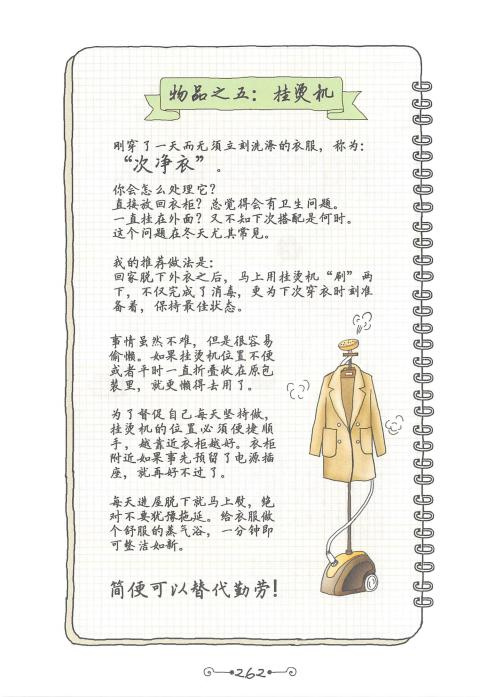 物品之五：挂烫机
刚穿了一天而无须立刻洗涤的衣服，称为：
“次净衣”。
你会怎么处理它？
直接放回衣柜？总觉得会有卫生问题。
一直挂在外面？又不知下次搭配是何时。
这个问题在冬天尤其常见。
我的推荐做法是：
回家脱下外衣之后，马上用挂烫机“刷”两
下，不仅完成了消毒，更为下次穿衣时刻准
备着，保持最佳状态。
事情虽然不难，但是很容易
偷懒。如果挂烫机位置不便
或者平时一直折叠收在原包
装里，就更懒得去用了。
为了督促自己每天坚持做，
挂烫机的位置必须便捷顺
手，越靠近衣柜越好。衣柜
附近如果事先预留了电源插
座，就再好不过了。
每天进屋脱下就马上熨，绝
对不要犹豫拖延。给衣服做
个舒服的蒸气浴，一分钟即
可整洁如新。
简便可以替代勤劳！
262